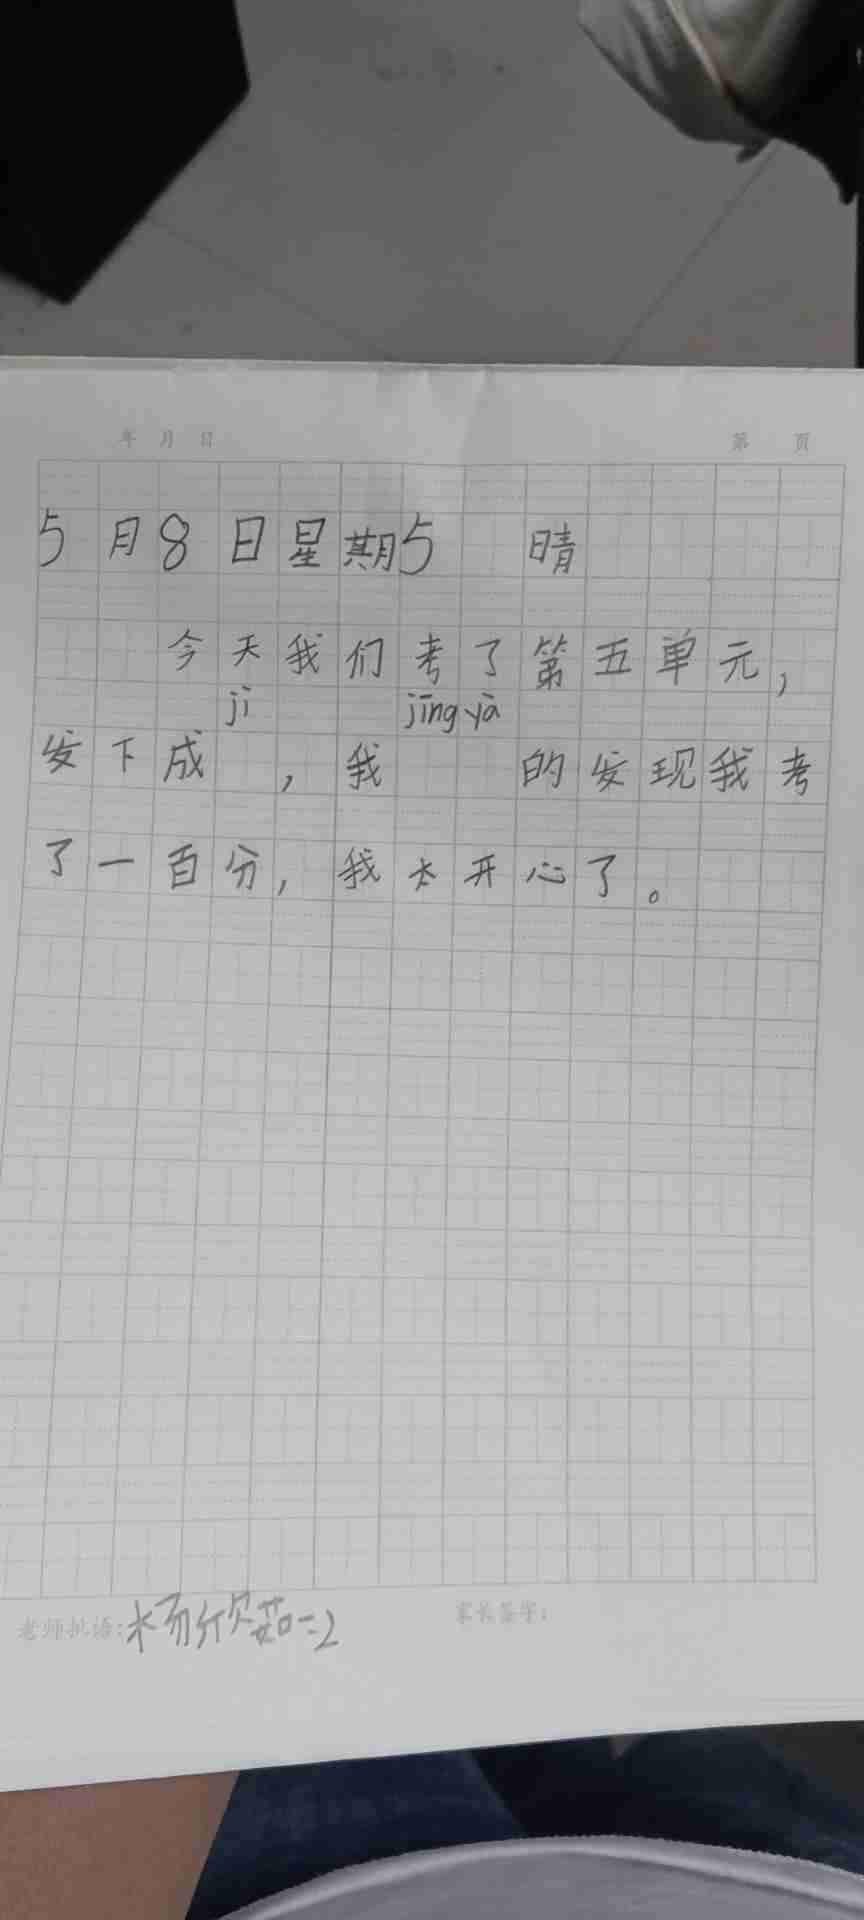 年 月 日 第 页
5月8日星期5 晴
今天我们考了第五单元，
jì jīng yà
发下成 ，我 的发现我考
了一百分，我太开心了。
老师批语：杨欣茹一.2 家长签字：